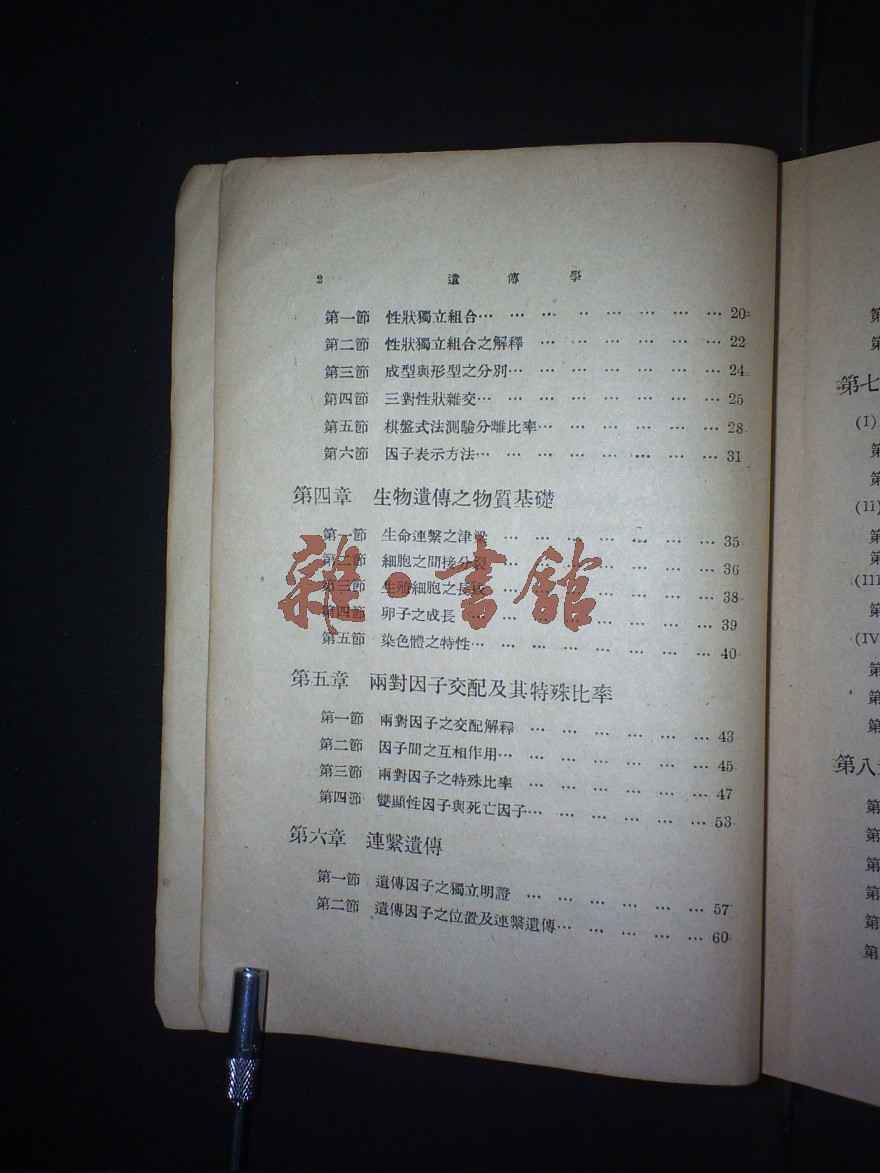 2 遺傳學
第一節 性狀獨立組合… … … … … … … … … 20
第二節 性狀獨立組合之解釋 … … … … … … … 22
第三節 成型與形型之分別… … … … … … … … 24
第四節 三對性狀雜交… … … … … … … … … 25
第五節 棋盤式法測驗分離比率… … … … … … … 28
第六節 因子表示方法… … … … … … … … … 31
第四章 生物遺傳之物質基礎
第一節 生命連繫之津梁 … … … … … … … … 35
第二節 細胞之間接分裂 … … … … … … … … 36
第三節 生殖細胞之長成 … … … … … … … … 38
第四節 卵子之成長 … … … … … … … … … 39
第五節 染色體之特性… … … … … … … … … 40
第五章 兩對因子交配及其特殊比率
第一節 兩對因子之交配解釋 … … … … … … … 43
第二節 因子間之互相作用… … … … … … … … 45
第三節 兩對因子之特殊比率 … … … … … … … 47
第四節 雙顯性因子與死亡因子… … … … … … … 53
第六章 連繫遺傳
第一節 遺傳因子之獨立明證 … … … … … … … 57
第二節 遺傳因子之位置及連繫遺傳… … … … … 60
雜·書館
第
第
第七
(I)
第
第
(II)
第
第
(III
第
(IV
第
第
第
第八
第
第
第
第
第
第